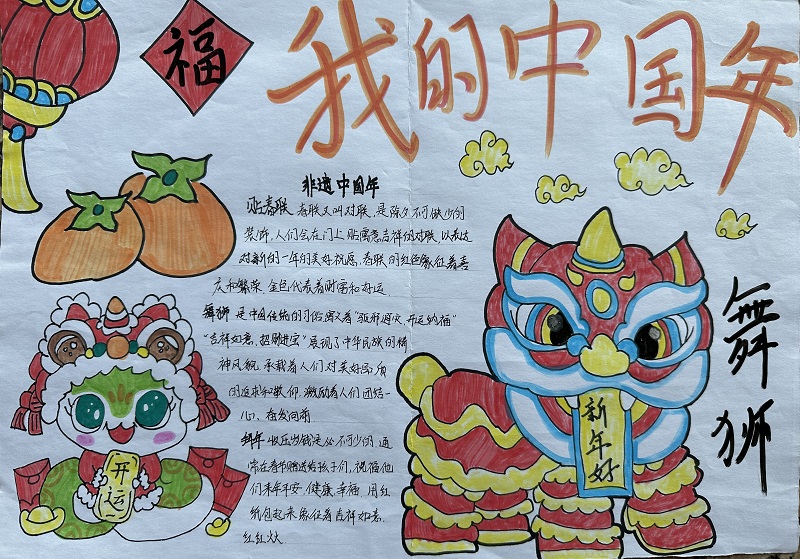 福
我的中国年
非遗中国年
贴春联 春联又叫对联,是除夕不可缺少的
装饰,人们会在门上贴寓意吉祥的对联,以表达
对新的一年的美好祝愿,春联的红色象征着喜
庆和繁荣,金色代表着财富和好运
舞狮 是中国传统的习俗寓意着“驱邪避灾,开运纳福”
“吉祥如意,招财进宝”展现了中华民族的精
神风貌,承载着人们对美好品质
的追求和敬仰,激励着人们团结一
心、奋发向前
拜年 收压岁钱是必不可少的,通
常在春节赠送给孩子们,祝福他
们来年平安、健康、幸福,用红
纸包起来象征着吉祥如意,
红红火火
舞狮
新年好
开运